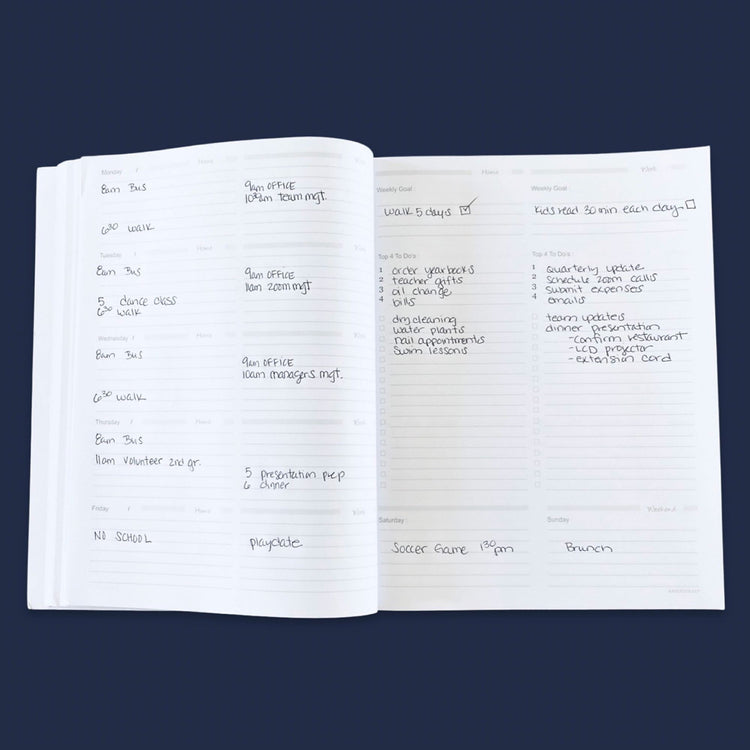 Monday / Home Work
8am Bus
9am OFFICE
10:30am Team mgt.
6:30 walk
Tuesday / Home Work
8am Bus
9am OFFICE
11am zoom mgt
5 dance class
6:30 walk
Wednesday / Home Work
8am Bus
9am OFFICE
10am managers mgt.
6:30 walk
Thursday / Home Work
8am Bus
11am volunteer 2nd gr.
5 presentation prep
6 dinner
Friday / Home Work
NO SCHOOL
playdate
Home
Weekly Goal:
walk 5 days
Top 4 To Do's
1 order yearbooks
2 teacher gifts
3 oil change
4 bills
dry cleaning
water plants
nail appointments
Swim lessons
Work
Weekly Goal:
Kids read 30 min each day
Top 4 To Do's
1 quarterly update
2 schedule zoom calls
3 submit expenses
4 emails
team updates
dinner presentation
- Confirm restaurant
- LCD projector
- extension cord
Weekend
Saturday
Soccer Game 1:30pm
Sunday
Brunch